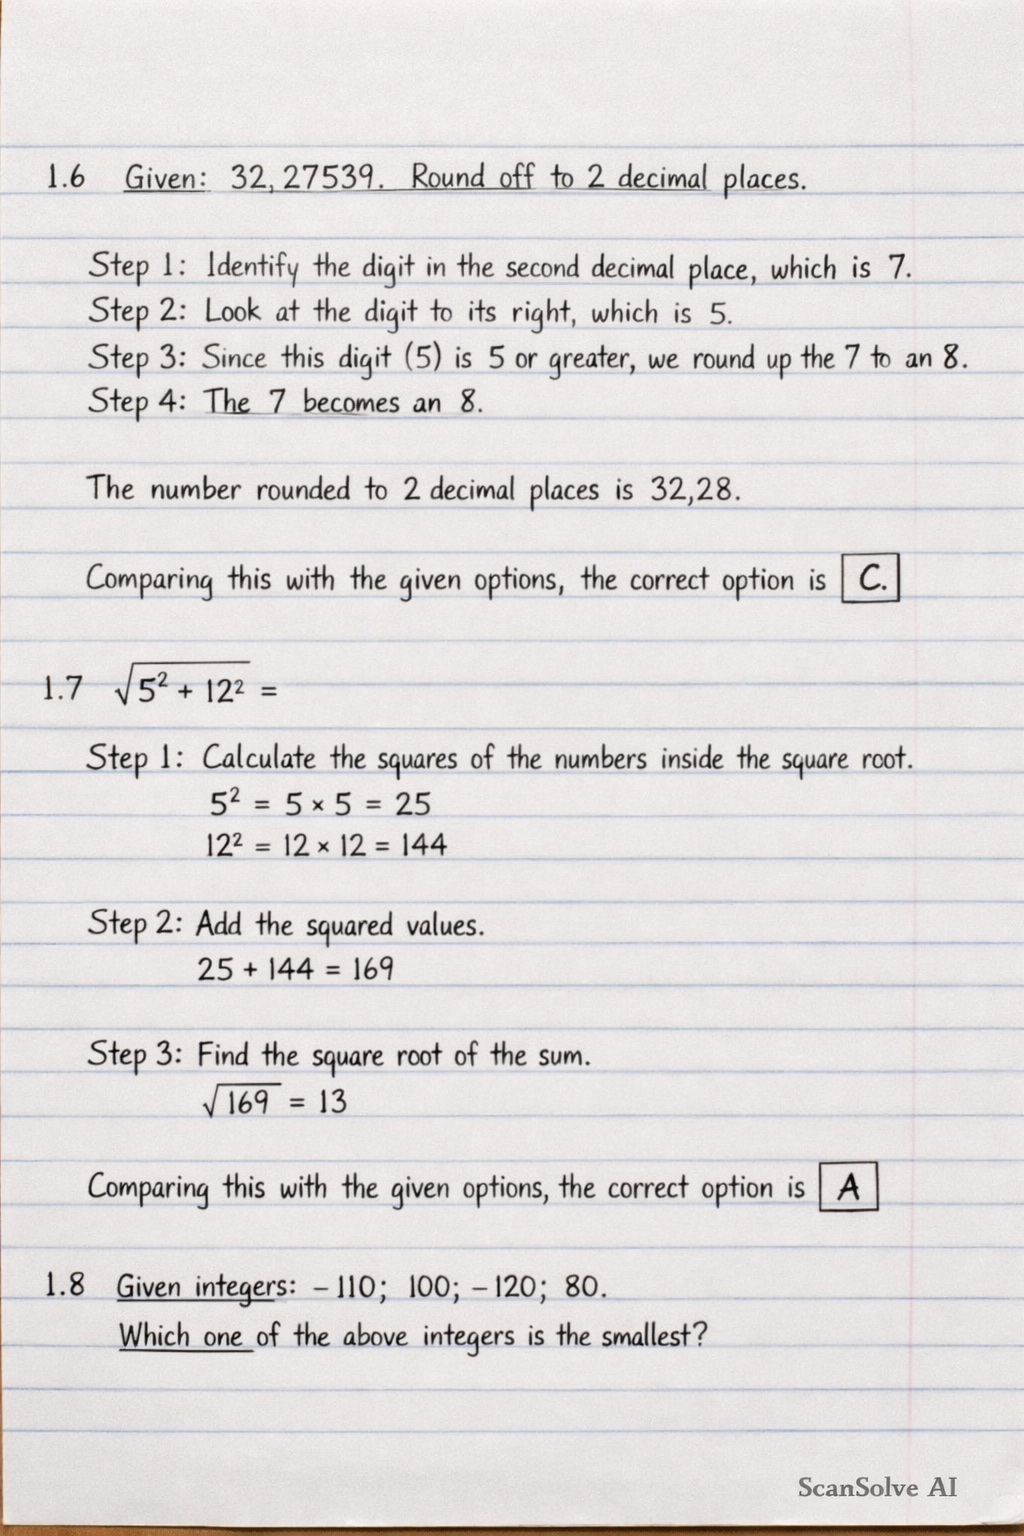 1.6 Given: 32,27539. Round off to 2 decimal places.
Step 1: Identify the digit in the second decimal place, which is 7.
Step 2: Look at the digit to its right, which is 5.
Step 3: Since this digit (5) is 5 or greater, we round up the 7 to an 8.
Step 4: The 7 becomes an 8.
The number rounded to 2 decimal places is 32,28.
Comparing this with the given options, the correct option is C.
1.7 √(5² + 12²) =
Step 1: Calculate the squares of the numbers inside the square root.
5² = 5 × 5 = 25
12² = 12 × 12 = 144
Step 2: Add the squared values.
25 + 144 = 169
Step 3: Find the square root of the sum.
√169 = 13
Comparing this with the given options, the correct option is A
1.8 Given integers: −110; 100; −120; 80.
Which one of the above integers is the smallest?
ScanSolve AI